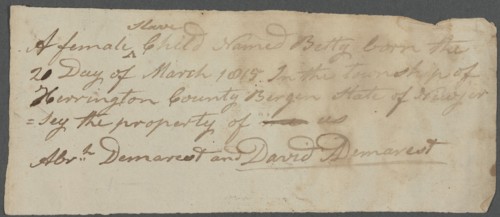 slave
A female ^ Child Named Betty born the
20 Day of March 1819. In the township of
Herrington County Bergen State of New jer
=sey the property of us
Abrm Demarest and David Demarest